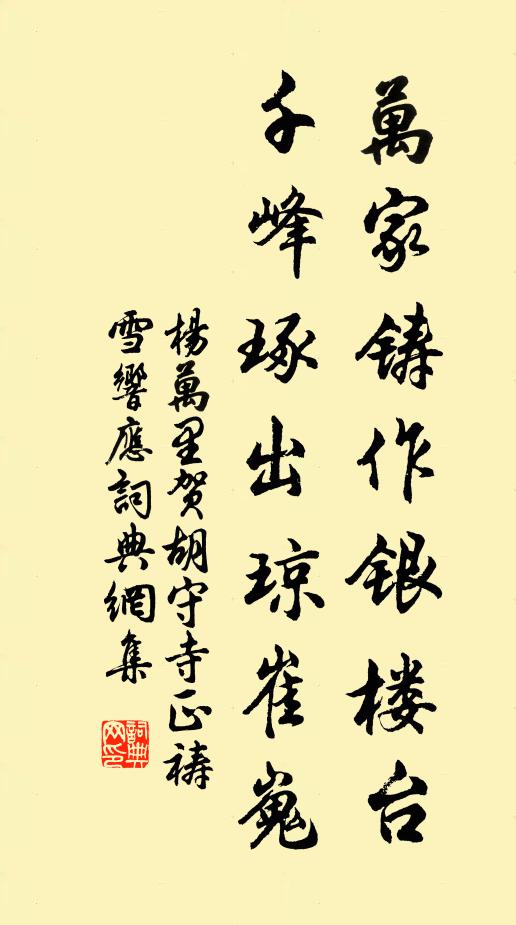 萬家铸作银楼台
千峰琢出琼崔嵬
楊萬里贺胡守寺正祷
雪響應詞典網集
詞典
网印